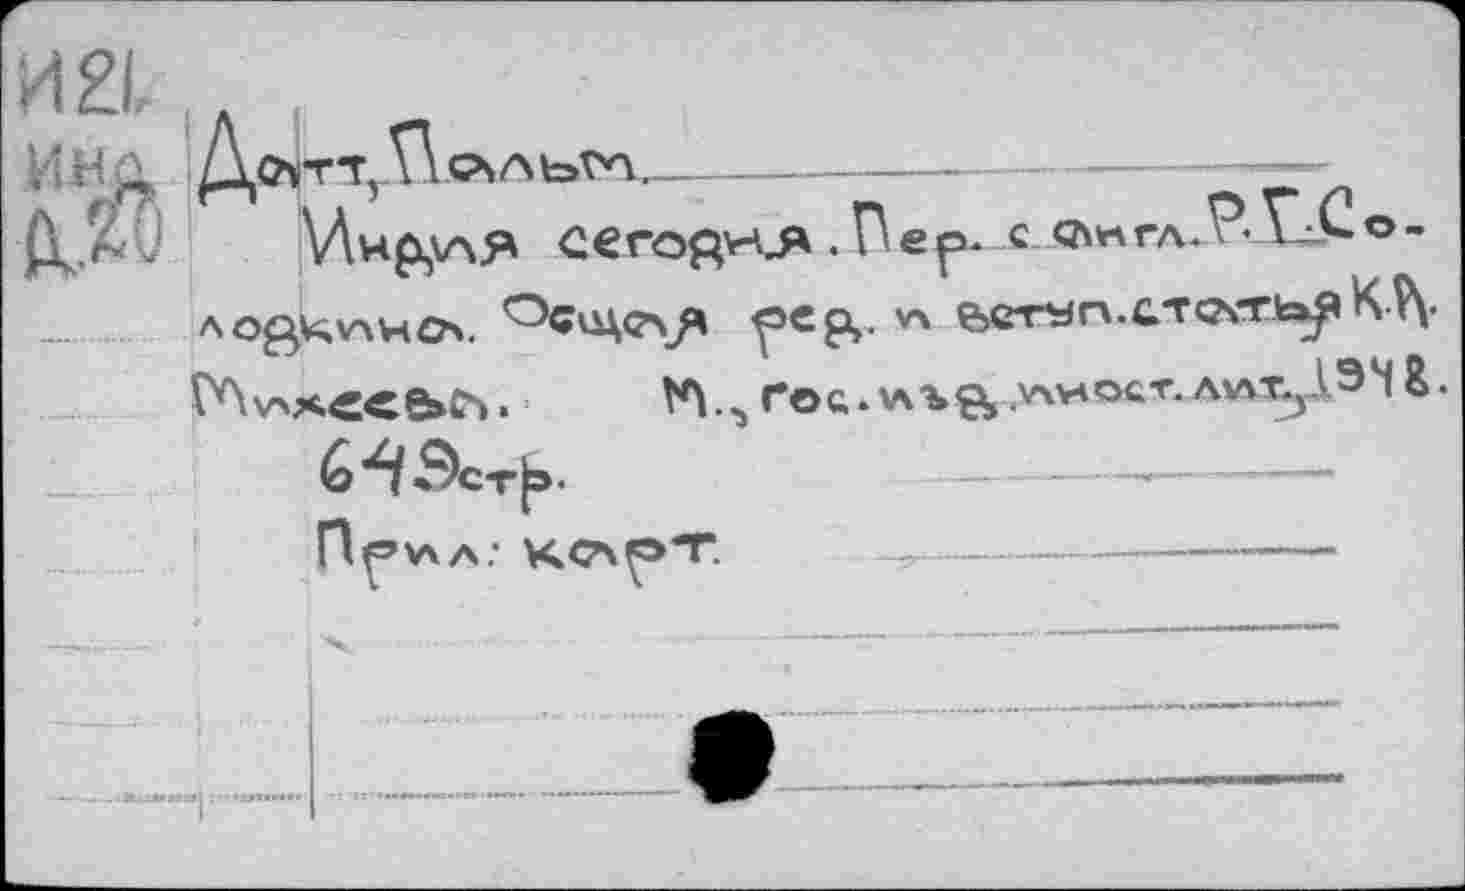 И2I
Инд
Д.20
Датт, Пальм.
Индия сегодня. Пер. с англ. Р.Г. Со-
лодкина. Общая ред. и вступ. статья К.А.
Михеева. М., Гос. изд. иност. лит., 1948.
649 стр.
Прил: карт.